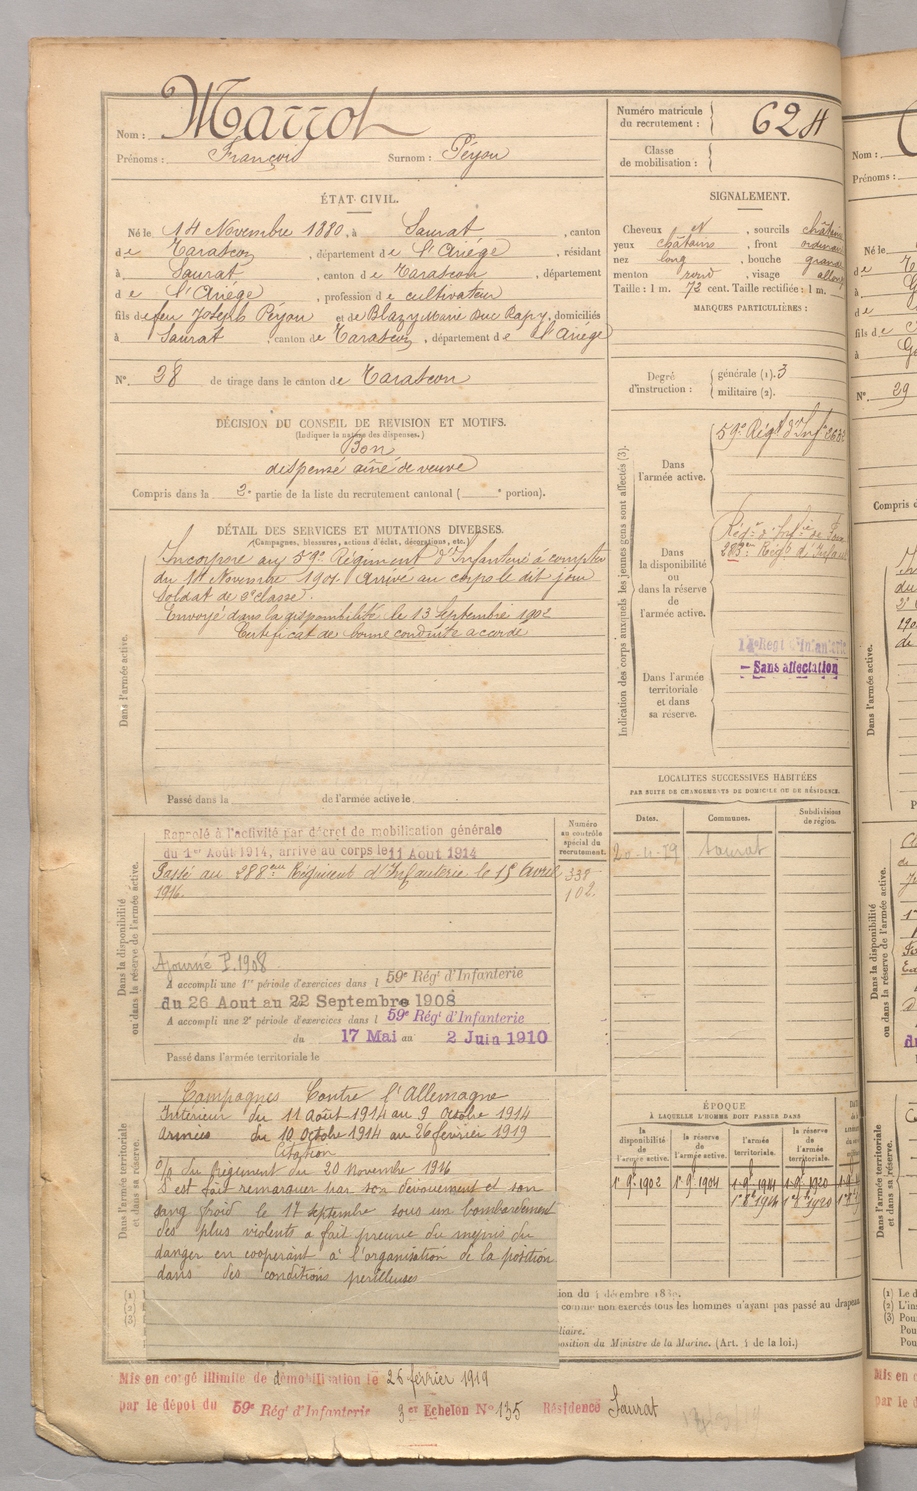 Nom : Marrot
Prénoms : François Surnom : Péyou
Numéro matricule du recrutement : 624
Classe de mobilisation :
ÉTAT CIVIL.
Né le 14 Novembre 1880, à Saurat, canton
de Tarascon, département de l'Ariége, résidant
à Saurat, canton de Tarascon, département
de l'Ariége, profession de cultivateur
fils de feu Joseph Péyou et de Blazy Marie domiciliés
à Saurat, canton de Tarascon, département de l'Ariége
N° 28 de tirage dans le canton de Tarascon
DÉCISION DU CONSEIL DE REVISION ET MOTIFS.
(Indiquer la nature des dispenses.)
Bon
dispensé aîné de veuve
Compris dans la 2e partie de la liste du recrutement cantonal ( e portion).
SIGNALEMENT.
Cheveux , sourcils
yeux châtains , front
nez long , bouche
menton rond , visage
Taille : 1 m. 72 cent. Taille rectifiée : 1 m.
MARQUES PARTICULIÈRES :
Degré d'instruction : générale (1). 3
militaire (2).
DÉTAIL DES SERVICES ET MUTATIONS DIVERSES.
(Campagnes, blessures, actions d'éclat, décorations, etc.)
Dans l'armée active.
Incorporé au 59e Régiment d'Infanterie à compter
du 14 Novembre 1901. Arrivé au corps le dit jour
Soldat de 2e classe.
Envoyé dans la disponibilité le 13 Septembre 1902
Certificat de bonne conduite accordé
Passé dans la de l'armée active le
Indication des corps auxquels les jeunes gens sont affectés (3).
Dans l'armée active.
59e Régt d'Inf
Dans la disponibilité ou dans la réserve de l'armée active.
Régt d'Infie de
283e Régt d'Infan
Dans l'armée territoriale et dans sa réserve.
14e Régt d'Infanterie
- Sans affectation
Dans la disponibilité ou dans la réserve de l'armée active.
Numéro au contrôle spécial du recrutement.
Rappelé à l'activité par décret de mobilisation générale
du 1er Août 1914, arrivé au corps le 11 Août 1914
Passé au 288eme Régiment d'Infanterie le 15 Avril
1916
338
102.
Ajourné P. 1908
A accompli une 1re période d'exercices dans l 59e Régt d'Infanterie
du 26 Aout au 22 Septembre 1908
A accompli une 2e période d'exercices dans l 59e Régt d'Infanterie
du 17 Mai au 2 Juin 1910
Passé dans l'armée territoriale le
LOCALITÉS SUCCESSIVES HABITÉES
PAR SUITE DE CHANGEMENTS DE DOMICILE OU DE RÉSIDENCE.
Dates. Communes. Subdivisions de région.
Saurat
Dans l'armée territoriale et dans sa réserve.
Campagnes Contre l'Allemagne
Intérieur du 11 Août 1914 au 9 Octobre 1914
Armées du 10 Octobre 1914 au 26 février 1919
Citation
O/ du Régiment du 20 Novembre 1916
S'est fait remarquer par son dévouement et son
sang froid le 17 septembre sous un bombardement
des plus violents a fait preuve du mépris du
danger en coopérant à l'organisation de la position
dans des conditions perilleuses
ÉPOQUE
À LAQUELLE L'HOMME DOIT PASSER DANS
la disponibilité de l'armée active. la réserve de l'armée active. l'armée territoriale. la réserve de l'armée territoriale.
1er 9bre 1902 1er 9bre 1904 1er 9bre 1914 1er 9bre 1920
(1)
(2)
(3)
comme non exercés tous les hommes n'ayant pas passé au drapeau
position du Ministre de la Marine. (Art. 4 de la loi.)
Mis en congé illimité de démobilisation le 26 février 1919
par le dépôt du 59e Régt d'Infanterie 3er Echelon N° 135 Résidence Saurat